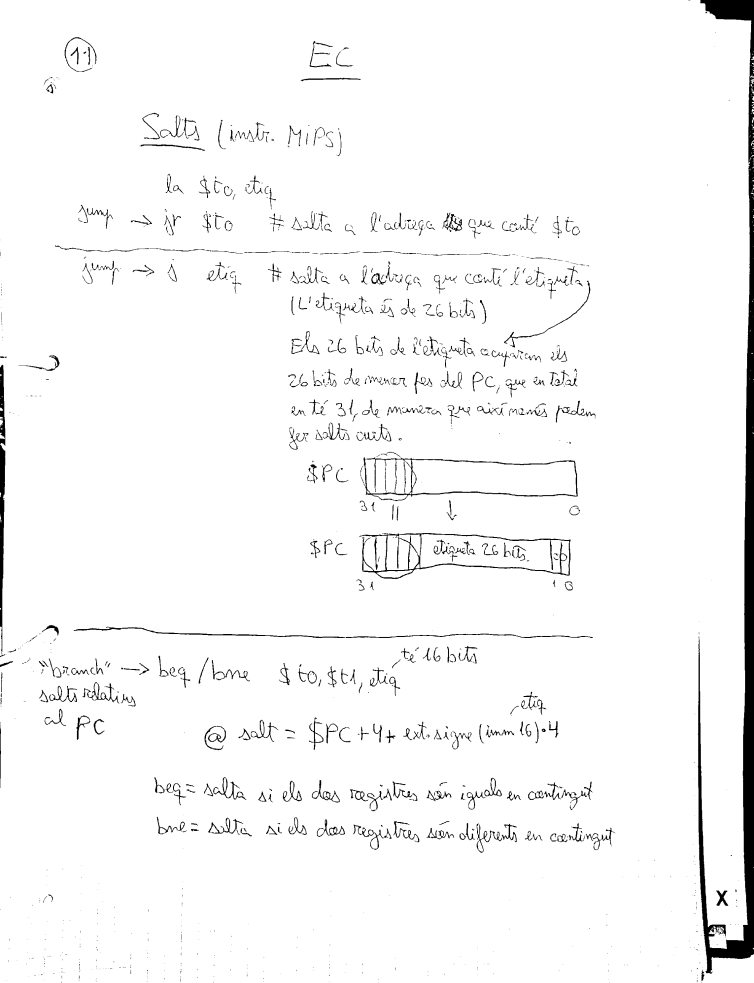 11
EC
Salts (instr. MiPS)
la $t0, etiq
jump → jr $t0 # salta a l'adreça que conté $t0
jump → j etiq # salta a l'adreça que conté l'etiqueta
(L'etiqueta és de 26 bits)
Els 26 bits de l'etiqueta ocuparan els
26 bits de menor pes del PC, que en total
en té 31, de manera que així només podem
fer salts curts.
$PC
31 || ↓ 0
$PC etiqueta 26 bits.
31 1 0
té 16 bits
"branch" → beq / bne $t0, $t1, etiq
salts relatius
al PC
etiq
@ salt = $PC + 4 + ext. signe (imm 16) · 4
beq = salta si els dos registres són iguals en contingut
bne = salta si els dos registres són diferents en contingut
X